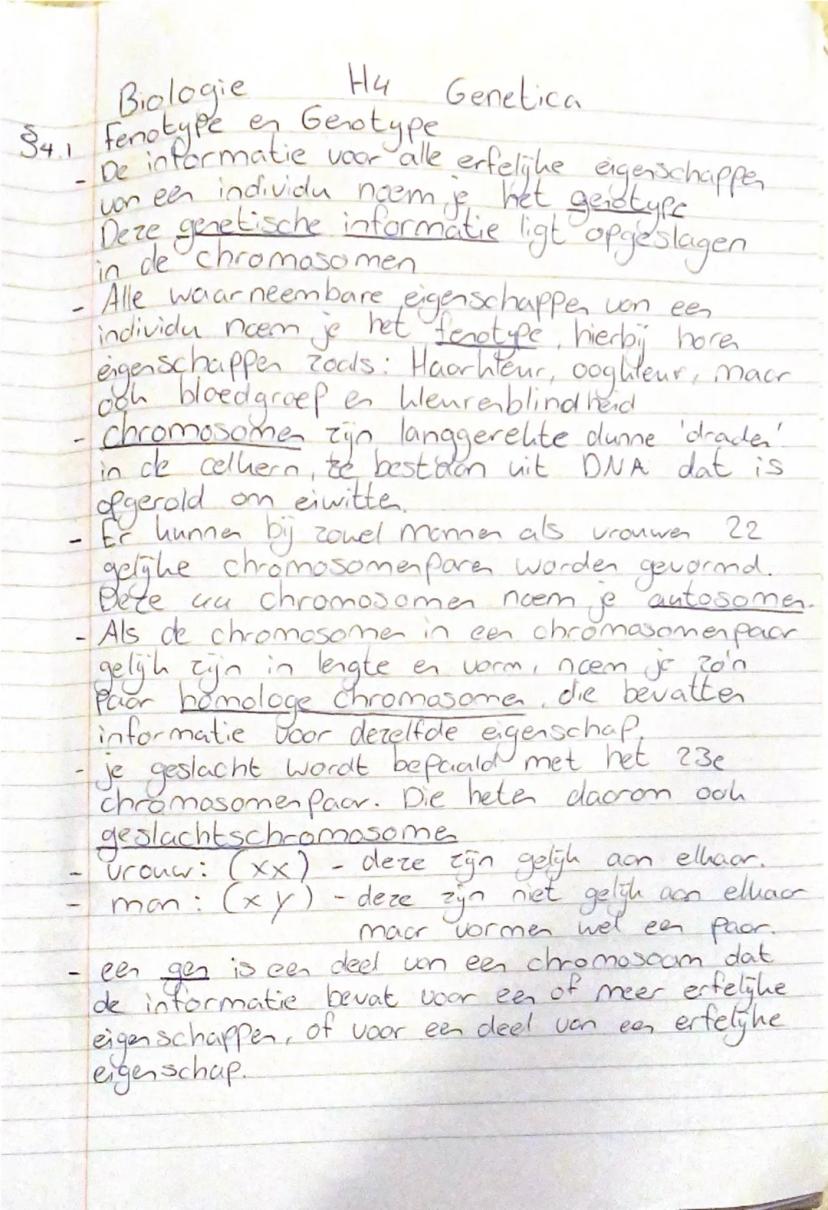 Biologie H4 Genetica
§4.1 Fenotype en Genotype
- De informatie voor alle erfelijke eigenschappen
van een individu noem je het genotype
Deze genetische informatie ligt opgeslagen
in de chromosomen
- Alle waarneembare eigenschappen van een
individu noem je het fenotype, hierbij horen
eigenschappen zoals: Haarkleur, oogkleur, maar
ook bloedgroep en kleurenblindheid
- chromosomen zijn langgerekte dunne 'draden'
in de celkern, ze bestaan uit DNA dat is
opgerold om eiwitten.
- Er kunnen bij zowel mannen als vrouwen 22
gelijke chromosomenparen worden gevormd.
Deze 44 chromosomen noem je autosomen.
- Als de chromosomen in een chromosomenpaar
gelijk zijn in lengte en vorm, noem je zo'n
paar homologe chromosomen, die bevatten
informatie voor dezelfde eigenschap.
- je geslacht wordt bepaald met het 23e
chromosomenpaar. Die heten daarom ook
geslachtschromosomen
- vrouw: (xx) - deze zijn gelijk aan elkaar.
- man: (xy) - deze zijn niet gelijk aan elkaar
maar vormen wel een paar.
- een gen is een deel van een chromosoom dat
de informatie bevat voor een of meer erfelijke
eigenschappen, of voor een deel van een erfelijke
eigenschap.